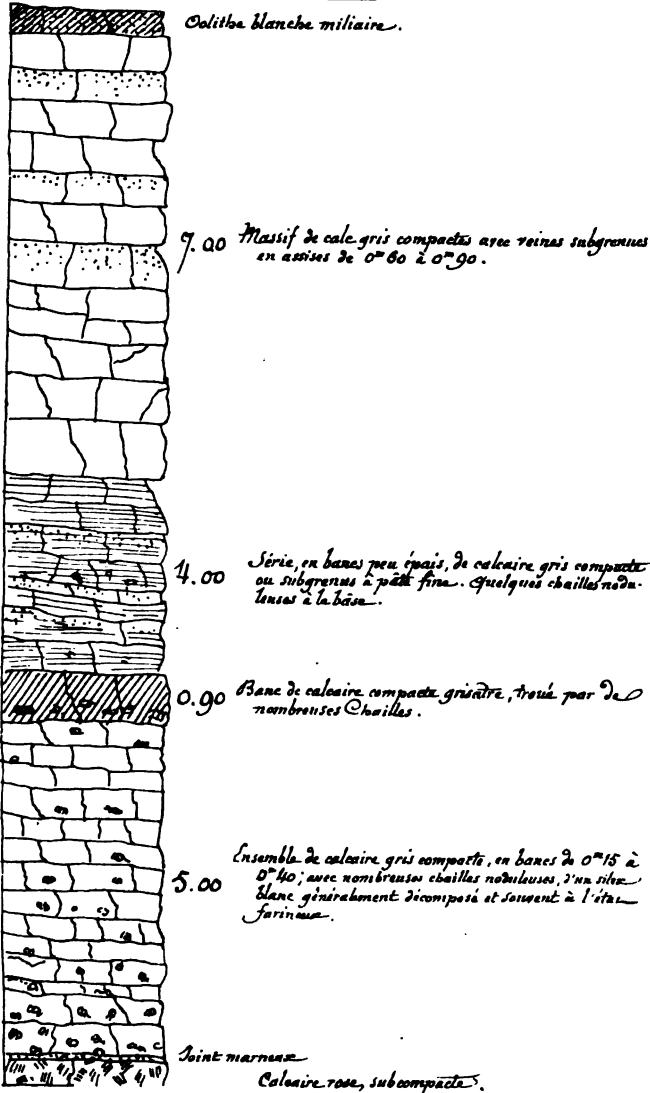 Oolithe blanche miliaire.
7.00 Massif de calc gris compactes avec veines subgrenues
en assises de 0m60 à 0m90.
4.00 Série, en bancs peu épais, de calcaire gris compacte
ou subgrenus à pâte fine. Quelques chailles nodu-
leuses à la bâse.
0.90 Banc de calcaire compacte grisâtre, troué par de
nombreuses Chailles.
5.00 Ensemble de calcaire gris compacte, en bancs de 0m15 à
0m40; avec nombreuses chailles noduleuses, d'un silex
blanc généralement décomposé et souvent à l'état
farineux.
Joint marneux
Calcaire rose, subcompacte.